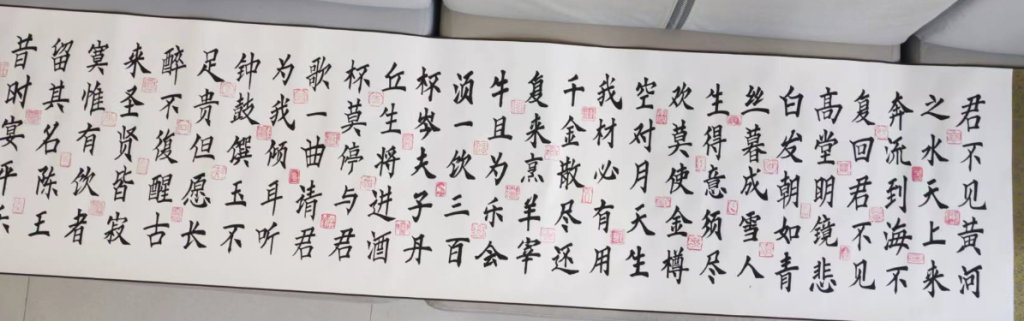 君不见黄河
之水天上来
奔流到海不
复回君不见
高堂明镜悲
白发朝如青
丝暮成雪人
生得意须尽
欢莫使金樽
空对月天生
我材必有用
千金散尽还
复来烹羊宰
牛且为乐会
湏一饮三百
杯岑夫子丹
丘生将进酒
杯莫停与君
歌一曲请君
为我倾耳听
钟鼓馔玉不
足贵但愿长
醉不復醒古
来圣贤皆寂
寞惟有饮者
留其名陈王
昔时宴平